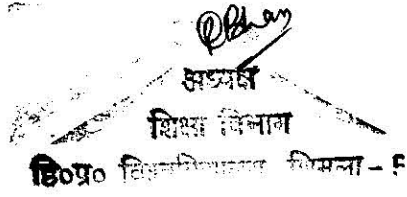 अध्यक्ष
शिक्षा विभाग
हि०प्र० विश्वविद्यालय शिमला – 5